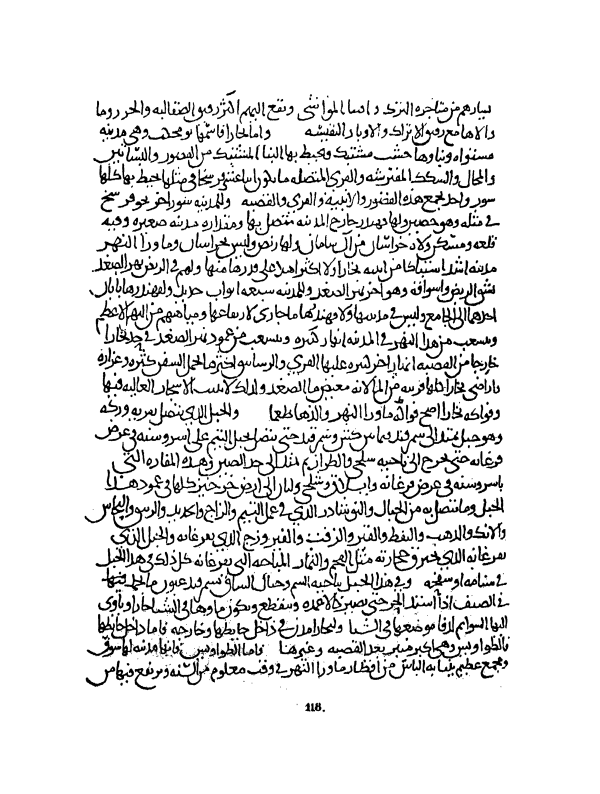 من متاجره الترك واما المواشي وتقع اليهم اكثر رقيق الصقالبه والخزر وما
والاها مع رقيق الاتراك والاوبار النفيسه واما بخارا فاسمها بومجكث وهي مدينه
مستواه وبناوها خشب مشتبك ويحيط بهذا البنا المشتبك من القصور والبساتين
والمحال والسكك المفترشه والقري المتصله ما يكون اثنا عشر فرسخا في مثلها يحيط بها كلها
سور واحد يجمع هذه القصور والابنيه والقري والقصبه وللمدينه سور اخر نحو فرسخ
في مثله وهو حصين ولها قهندز خارج المدينه متصل بها ومقداره مدينه صغيره وفيه
قلعه ومسكن ولاه خراسان من ال سامان ولها ربض وليس بخراسان وما ورا النهر
مدينه اشد اشتباكا من ابنيه بخارا ولا اكثر اهلا علي قدرها منها ولهم في الربض نهر الصغد
يشق الربض واسواقه وهو اخر نهر الصغد وللمدينه سبعه ابواب حديد ولقهندزها بابان
احدهما الي الجامع وليس في مدينتها ولا قهندزها ما جاري لارتفاعها ومياههم من النهر الاعظم
ويتشعب من هذا النهر في المدينه انهار كثيره ويتشعب من عمود نهر الصغد في حد بخارا
خارجا من القصبه انهار اخر كثيره عليها القري والرساتيق كثره وغزاره
واراضي بخارا كلها قريبه من الما لانه مغيض ما الصغد ولذلك لا ينبت الاشجار العاليه فيها
وفواكه بخارا اصح فواكه ما ورا النهر والذها طعما والجبل الذي يتصل بقريه وركه
وهو جبل يمتد الي سمرقند فيما بين كش وسمرقند حتي يتصل بجبل البتم علي اسروسنه في عرض
فرغانه حتي يخرج الي ناحيه شلجي والطراز ثم يمتد الي حد الصين وهذه المفازه التي
باسروسنه في عرض فرغانه وايلاق وشلجي الي ارض خرخيز كلها في عمود هذا
الجبل وما يتصل به من الجبال والنوشادر الذي في عمل البتم والزاج والحديد والزيبق والنحاس
والانك والذهب والنفط والقير والزفت والفيروزج الذي بفرغانه والجبل الذي
بفرغانه الذي يحترق حجارته مثل الفحم والثمار المباحه التي بفرغانه كل ذلك في هذا الجبل
في او سفحه وفي هذا الجبل بناحيه وجبال الساق عيون ما فيها
في الصيف اذا اشتد الحر حتي يصير كالاعمده وينقطع ويكون ماوها في الشتا حارا وتاوي
اليها السوايم لدفا موضعها في الشتا ولبخارا مدن في داخل حايطها وخارجه فاما داخل حايطها
فالطواويس وهي اكبر منبر بعد القصبه وغيرها فاما الطواويس فانها مدينه لها سوق
ومجمع عظيم ينتابه الناس من اقطار ما ورا النهر في وقت معلوم من السنه ويرتفع فيها من
118.